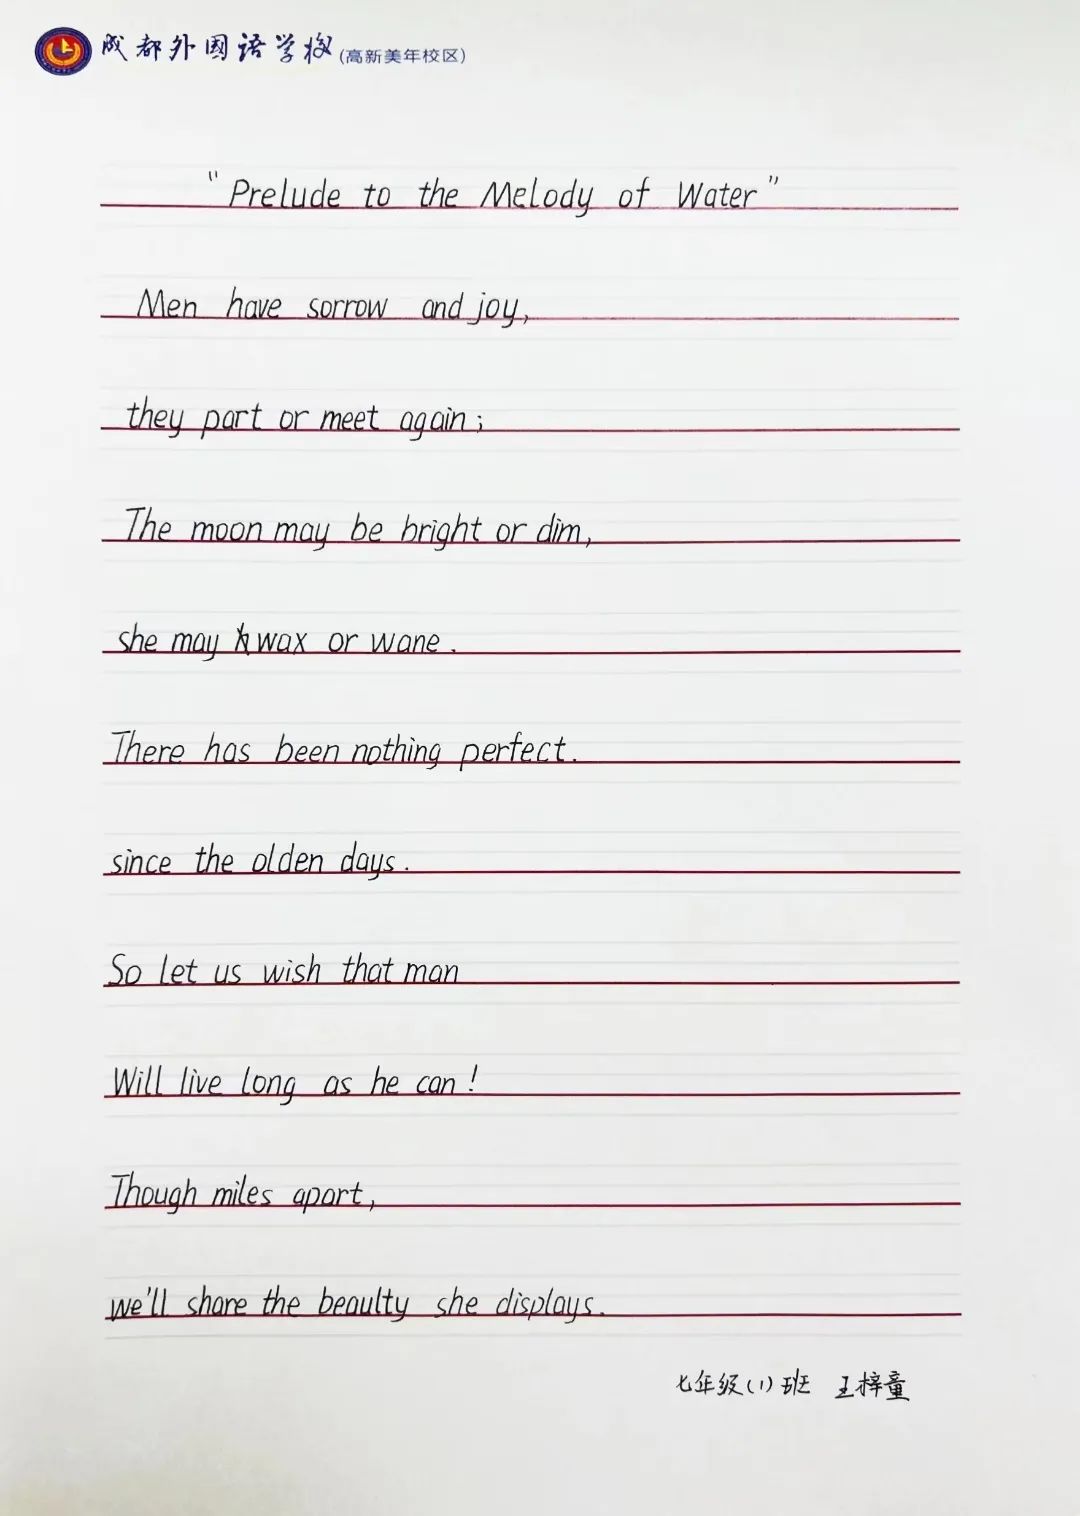 成都外国语学校(高新美年校区)
"Prelude to the Melody of Water"
Men have sorrow and joy,
they part or meet again;
The moon may be bright or dim,
she may wax or wane.
There has been nothing perfect.
since the olden days.
So let us wish that man
Will live long as he can!
Though miles apart,
we'll share the beaulty she displays.
七年级(1)班 王梓童